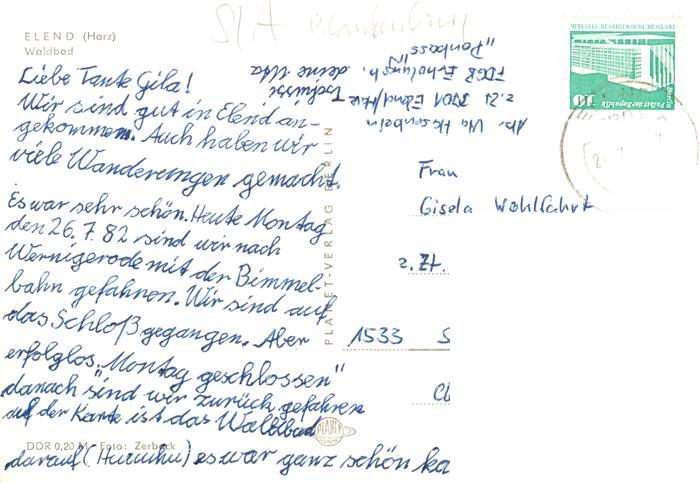 ELEND (Harz)
Waldbad
Liebe Tante Gila!
Wir sind gut in Elend an-
gekommen. Auch haben wir
viele Wanderungen gemacht.
Es war sehr schön. Heute Montag
den 26.7.82 sind wir nach
Wernigerode mit der Bimmel-
bahn gefahren. Wir sind auf
das Schloß gegangen. Aber
erfolglos „Montag geschlossen"
danach sind wir zurück gefahren
auf der Karte ist das Waldbad
DDR 0,20 M Foto: Zerback
darauf (Huuuhu) es war ganz schön ka
Tschüssi
deine Uta
Abs. Uta Hasenbein
z. Zt. 3701 Elend/Harz
FDGB Erholungsh.
"Panbass"
PLANET-VERLAG BERLIN
PLANET
Frau
Gisela Wohlfahrt
z. Zt.
1533 S
DEUTSCHE DEMOKRATISCHE REPUBLIK
Palast der Republik
Berlin
10